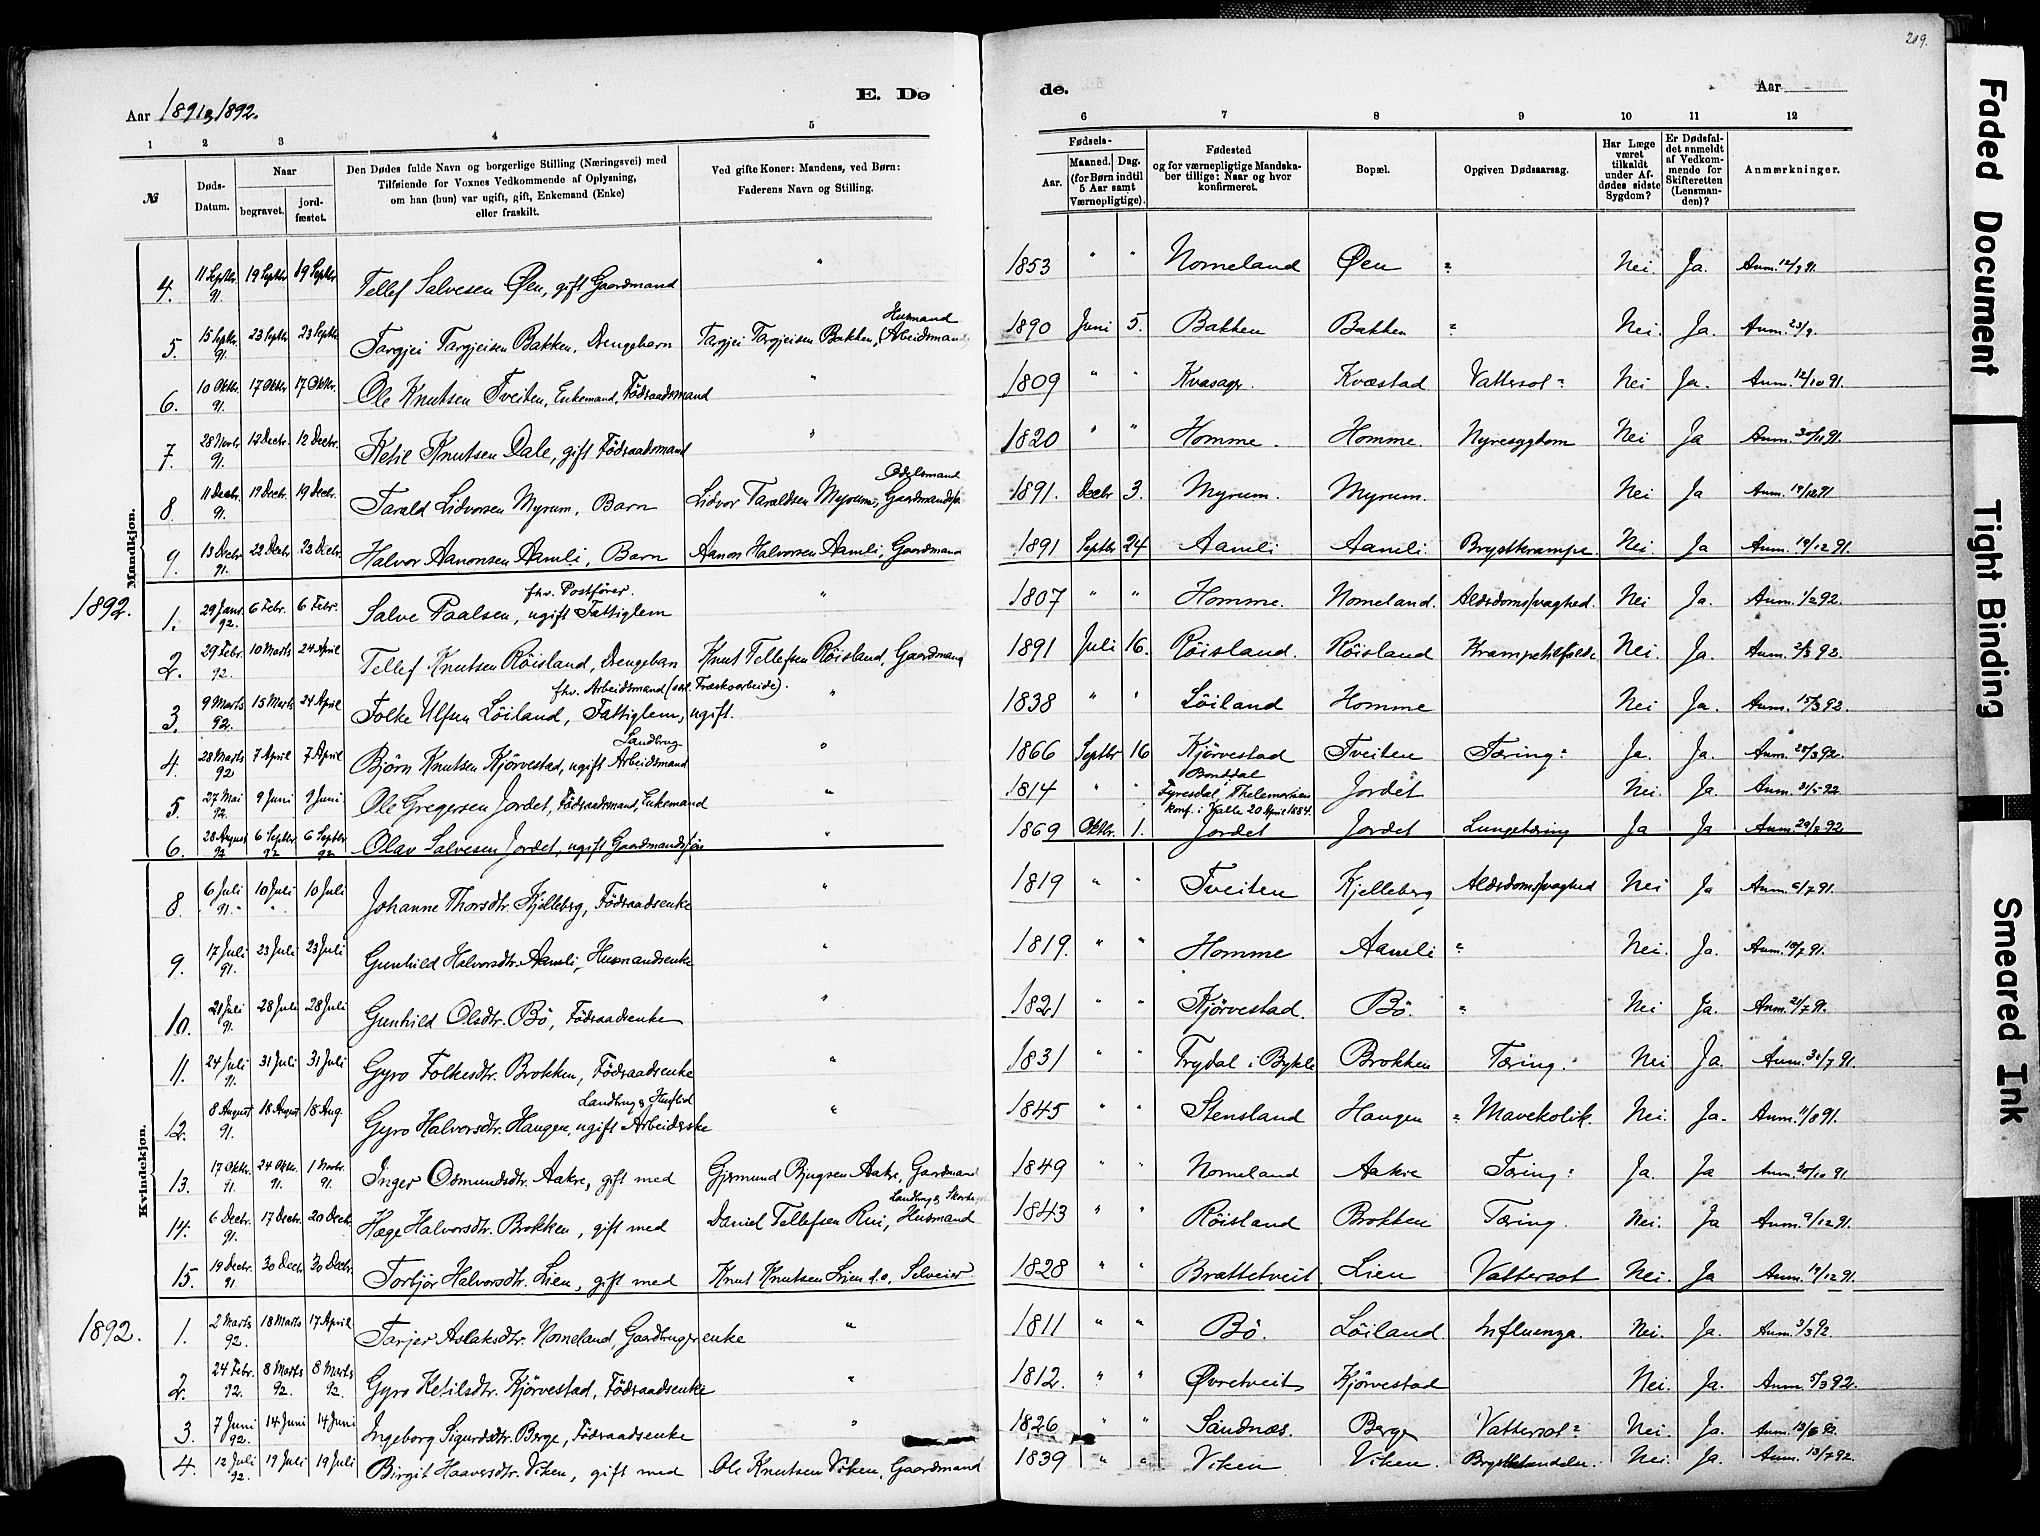 209.
Aar 1891 & 1892. E. Dø de. Aar
1 2 3 4 5 6 7 8 9 10 11 12
№ Døds-Datum. Naar begravet. jordfæstet. Den Dødes fulde Navn og borgerlige Stilling (Næringsvei) med Tilføiende for Voxnes Vedkommende af Oplysning, om han (hun) var ugift, gift, Enkemand (Enke) eller fraskilt. Ved gifte Koner: Mandens, ved Børn: Faderens Navn og Stilling. Fødsels- Aar. Maaned. Dag. (for Børn indtil 5 Aar samt Værnepligtige). Fødested og for værnepligtige Mandskaber tillige: Naar og hvor konfirmeret. Bopæl. Opgiven Dødsaarsag. Har Læge været tilkaldt under Afdødes sidste Sygdom? Er Dødsfaldet anmeldt af Vedkommende for Skifteretten (Lensmanden)? Anmærkninger.
Mandkjøn.
4. 11 Septbr. 91. 19 Septbr 19 Septbr Tellef Salvesen Øen, gift Gaardmand " 1853 " " Nomeland Øen " Nei. Ja. Anm. 12/9 91.
5. 15 Septbr. 91. 23 Septbr 23 Septbr Targjei Targjeisen Bakken, Drengebarn Targjei Targjeisen Bakken, Husmand (Arbeidsmand) 1890 Juni 5. Bakken Bakken " Nei. Ja. Anm. 23/9.
6. 10 Oktbr. 91. 17 Oktbr 17 Oktbr. Ole Knutsen Tveiten, Enkemand, Födraadsmand " 1809 " " Kvasager. Kvæstad Vattersot " Nei Ja. Anm. 12/10 91.
7. 28 Novbr. 91. 12 Decbr. 12 Decbr. Ketil Knutsen Dale, gift Födraadsmand " 1820 " " Homme. Homme. Nyresygdom Nei Ja Anm. 30/11 91.
8. 11 Decbr. 91. 19 Decbr. 19 Decbr. Tarald Lidvorsen Myrum, Barn Lidvor Taraldsen Myrum, Odelsmand Gaardmandsøn 1891. Decbr 3. Myrum. Myrum. Nei Ja Anm. 19/12 91
9. 13 Decbr. 91. 22 Decbr. 22 Decbr. Halvor Aanonsen Aamli, Barn Aanon Halvorsen Aamli, Gaardmand 1891 Septbr 24 Aamli Aamli. Brystkrampe. Nei. Ja Anm. 19/12 91.
1892. 1. 29 Janr. 92. 6 Febr. 6 Febr. Salve Paalsen, fhv. Postfører. ugift Fattiglem " 1807 " " Homme. Nomeland. Alderdomssvaghed. Nei Ja. Anm. 1/2 92.
2. 29 Febr. 92. 10 Marts 24 April Tellef Knutsen Röisland, Drengebarn Knut Tellefsen Röisland, Gaardmand 1891 Juli 16. Röisland. Röisland Krampetilfælde Nei. Ja. Anm. 2/3 92.
3. 9 Marts 92. 15 Marts 24 April Folke Ulfsen Löiland, fhv. Arbeidsmand (sæl. Træskoarbeide). Fattiglem, ugift. " 1838 " " Löiland Homme Nei Ja. Anm. 15/3 92.
4. 28 Marts 92 7 April 7 April Björn Knutsen Kjörvestad, ugift Landbrug Arbeidsmand " 1866 Septbr 16 Kjörvestad Tveiten Tæring " Ja. Ja. Anm. 28/3 92.
5. 27 Mai 92. 9 Juni 9 Juni Ole Gregersen Jordet, Födraadsmand, Enkemand " 1814 " Tyresdal, Thelemarken Jordet Nei. Ja. Anm.
6. 28 August 92 6 Septbr 92 6 Septbr 92 Olav Salvesen Jordet, ugift Gaardmandssön " 1869 Oktbr. 1. konf. i Valle 20 April 1884. Jordet Jordet Lungetæring Ja Ja Anm. 29/8 92.
Kvindekjøn.
8. 6 Juli 91. 10 Juli 10 Juli Johanne Thorsdtr. Kjelleberg, Födraadsenke " 1819 " " Tveiten Kjelleberg Alderdomssvaghed Nei Ja Anm. 6/7 91.
9. 17 Juli 91. 23 Juli 23 Juli Gunhild Halvorsdtr. Aamli, Husmandsenke " 1819. " " Homme Aamli " Nei. Ja. Anm. 18/7 91.
10. 21 Juli 91. 28 Juli 28 Juli Gunhild Olsdtr. Bö, Födraadsenke " 1821 " " Kjörvestad. Bö. " Nei Ja. Anm. 21/7 91.
11. 24 Juli 91. 31 Juli 31 Juli Gyro Folkesdtr. Brokken, Födraadsenke " 1831 " " Trydal i Bykle Brokken Tæring. Nei Ja. Anm. 30/7 91.
12. 8 August 91. 18 August 18 Aug. Gyro Halvorsdtr. Haugen, ugift Landbrug & Husflid Arbeiderske " 1845 " " Stensland Haugen " Mavekolik. Nei. Ja. Anm. 11/8 91.
13. 17 Oktbr. 91. 24 Oktbr. 91. 1 Novbr. 91. Inger Osmundsdtr. Aakre, gift med Gjermund Bjugsen Aakre, Gaardmand 1849 " " Nomeland Aakre Tæring " Ja. Ja Anm. 20/10 91.
14. 6 Decbr. 91. 17 Decbr. 20 Decbr. Hæge Halvorsdtr. Brokken, gift med Daniel Tellefsen Rui, Landbrug & Husmand 1843 " " Röisland Brokken Tæring. Nei. Ja Anm. 9/12 91.
15. 19 Decbr. 91. 30 Decbr 30 Decbr. Torbjör Halvorsdtr. Lien, gift med Knut Knutsen Lien d.o. Selveier 1828 " " Brattetveit Lien Vattersot Nei. Ja Anm. 19/12 91.
1892. 1. 2 Marts 92. 18 Marts 17 April Tarjer Aslaksdtr. Nomeland, Gaardbrugerenke " 1811 " " Bö. Löiland. Influenza. Nei. Ja. Anm. 3/3 92
2. 24 Febr. 92. 8 Marts 92. 8 Marts 92. Gyro Ketilsdtr. Kjörvestad, Födraadsenke " 1812. " " Øvretveit Kjörvestad Nei. Ja. Anm. 5/3 92.
3. 7 Juni 92. 14 Juni 14 Juni Ingeborg Sigurdsdtr. Berge, Födraadsenke " 1826 " " Sandnæs. Berge Vattersot " Nei. Ja. Anm. 13/6 92.
4. 12 Juli 92. 19 Juli 19 Juli Birgit Haavorsdtr. Viken, gift med Ole Knutsen Viken, Gaardmand 1839 " " Viken Viken. Nei. Ja. Anm. 13/7 92.
Faded Document
Tight Binding
Smeared Ink